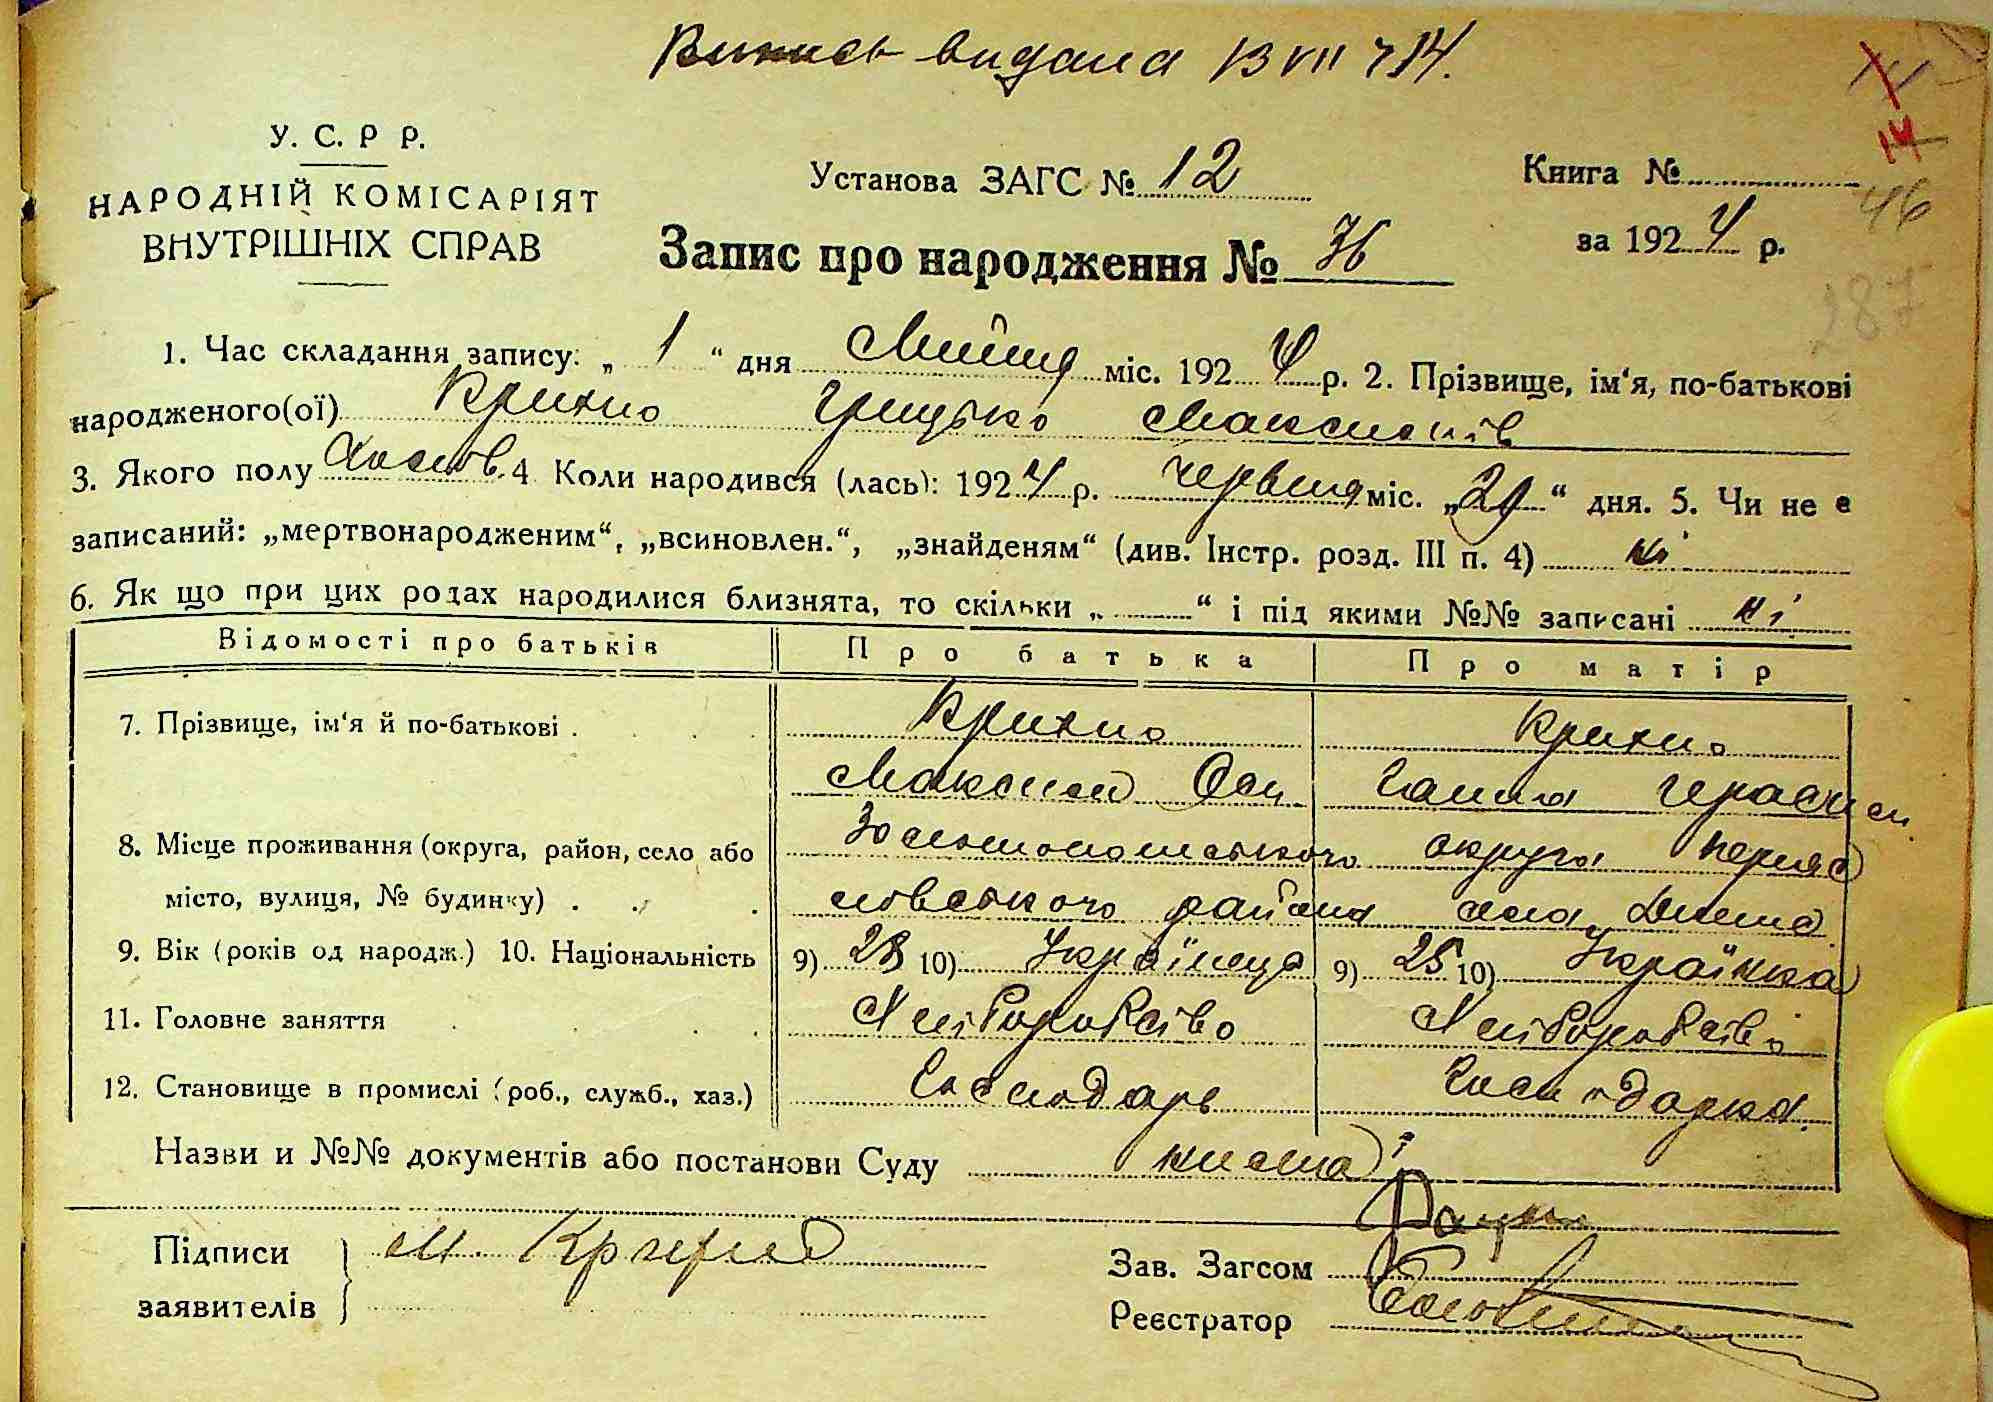 Випись видана 13 VII
У. С. Р Р.
НАРОДНІЙ КОМІСАРІЯТ
ВНУТРІШНІХ СПРАВ
Установа ЗАГС № 12
Книга №
за 1924 р.
14
46
287
Запис про народження № 36
1. Час складання запису: „ 1 “ дня Липня міс. 1924 р. 2. Прізвище, ім‘я, по-батькові
народженого(ої) Грицько Максимів
3. Якого полу 4 Коли народився (лась): 1924 р. червня міс. „ “ дня. 5. Чи не є
записаний: „мертвонародженим“, „всиновлен.“, „знайденям“ (див. Інстр. розд. III п. 4) ні
6. Як що при цих родах народилися близнята, то скільки „ “ і під якими №№ записані ні
Відомості про батьків Про батька Про матір
7. Прізвище, ім‘я й по-батькові
Максим Оси Ганна Герасим
8. Місце проживання (округа, район, село або Золотоноського округа Переяс
місто, вулиця, № будинку) лавського района села
9. Вік (років од народж.) 10. Національність 9) 28 10) Українець 9) 25 10) Українка
11. Головне заняття Хліборобство Хліборобство
12. Становище в промислі (роб., служб., хаз.) Господарь Господарка
Назви и №№ документів або постанови Суду нема
Підписи М.
заявителів
Зав. Загсом
Реєстратор